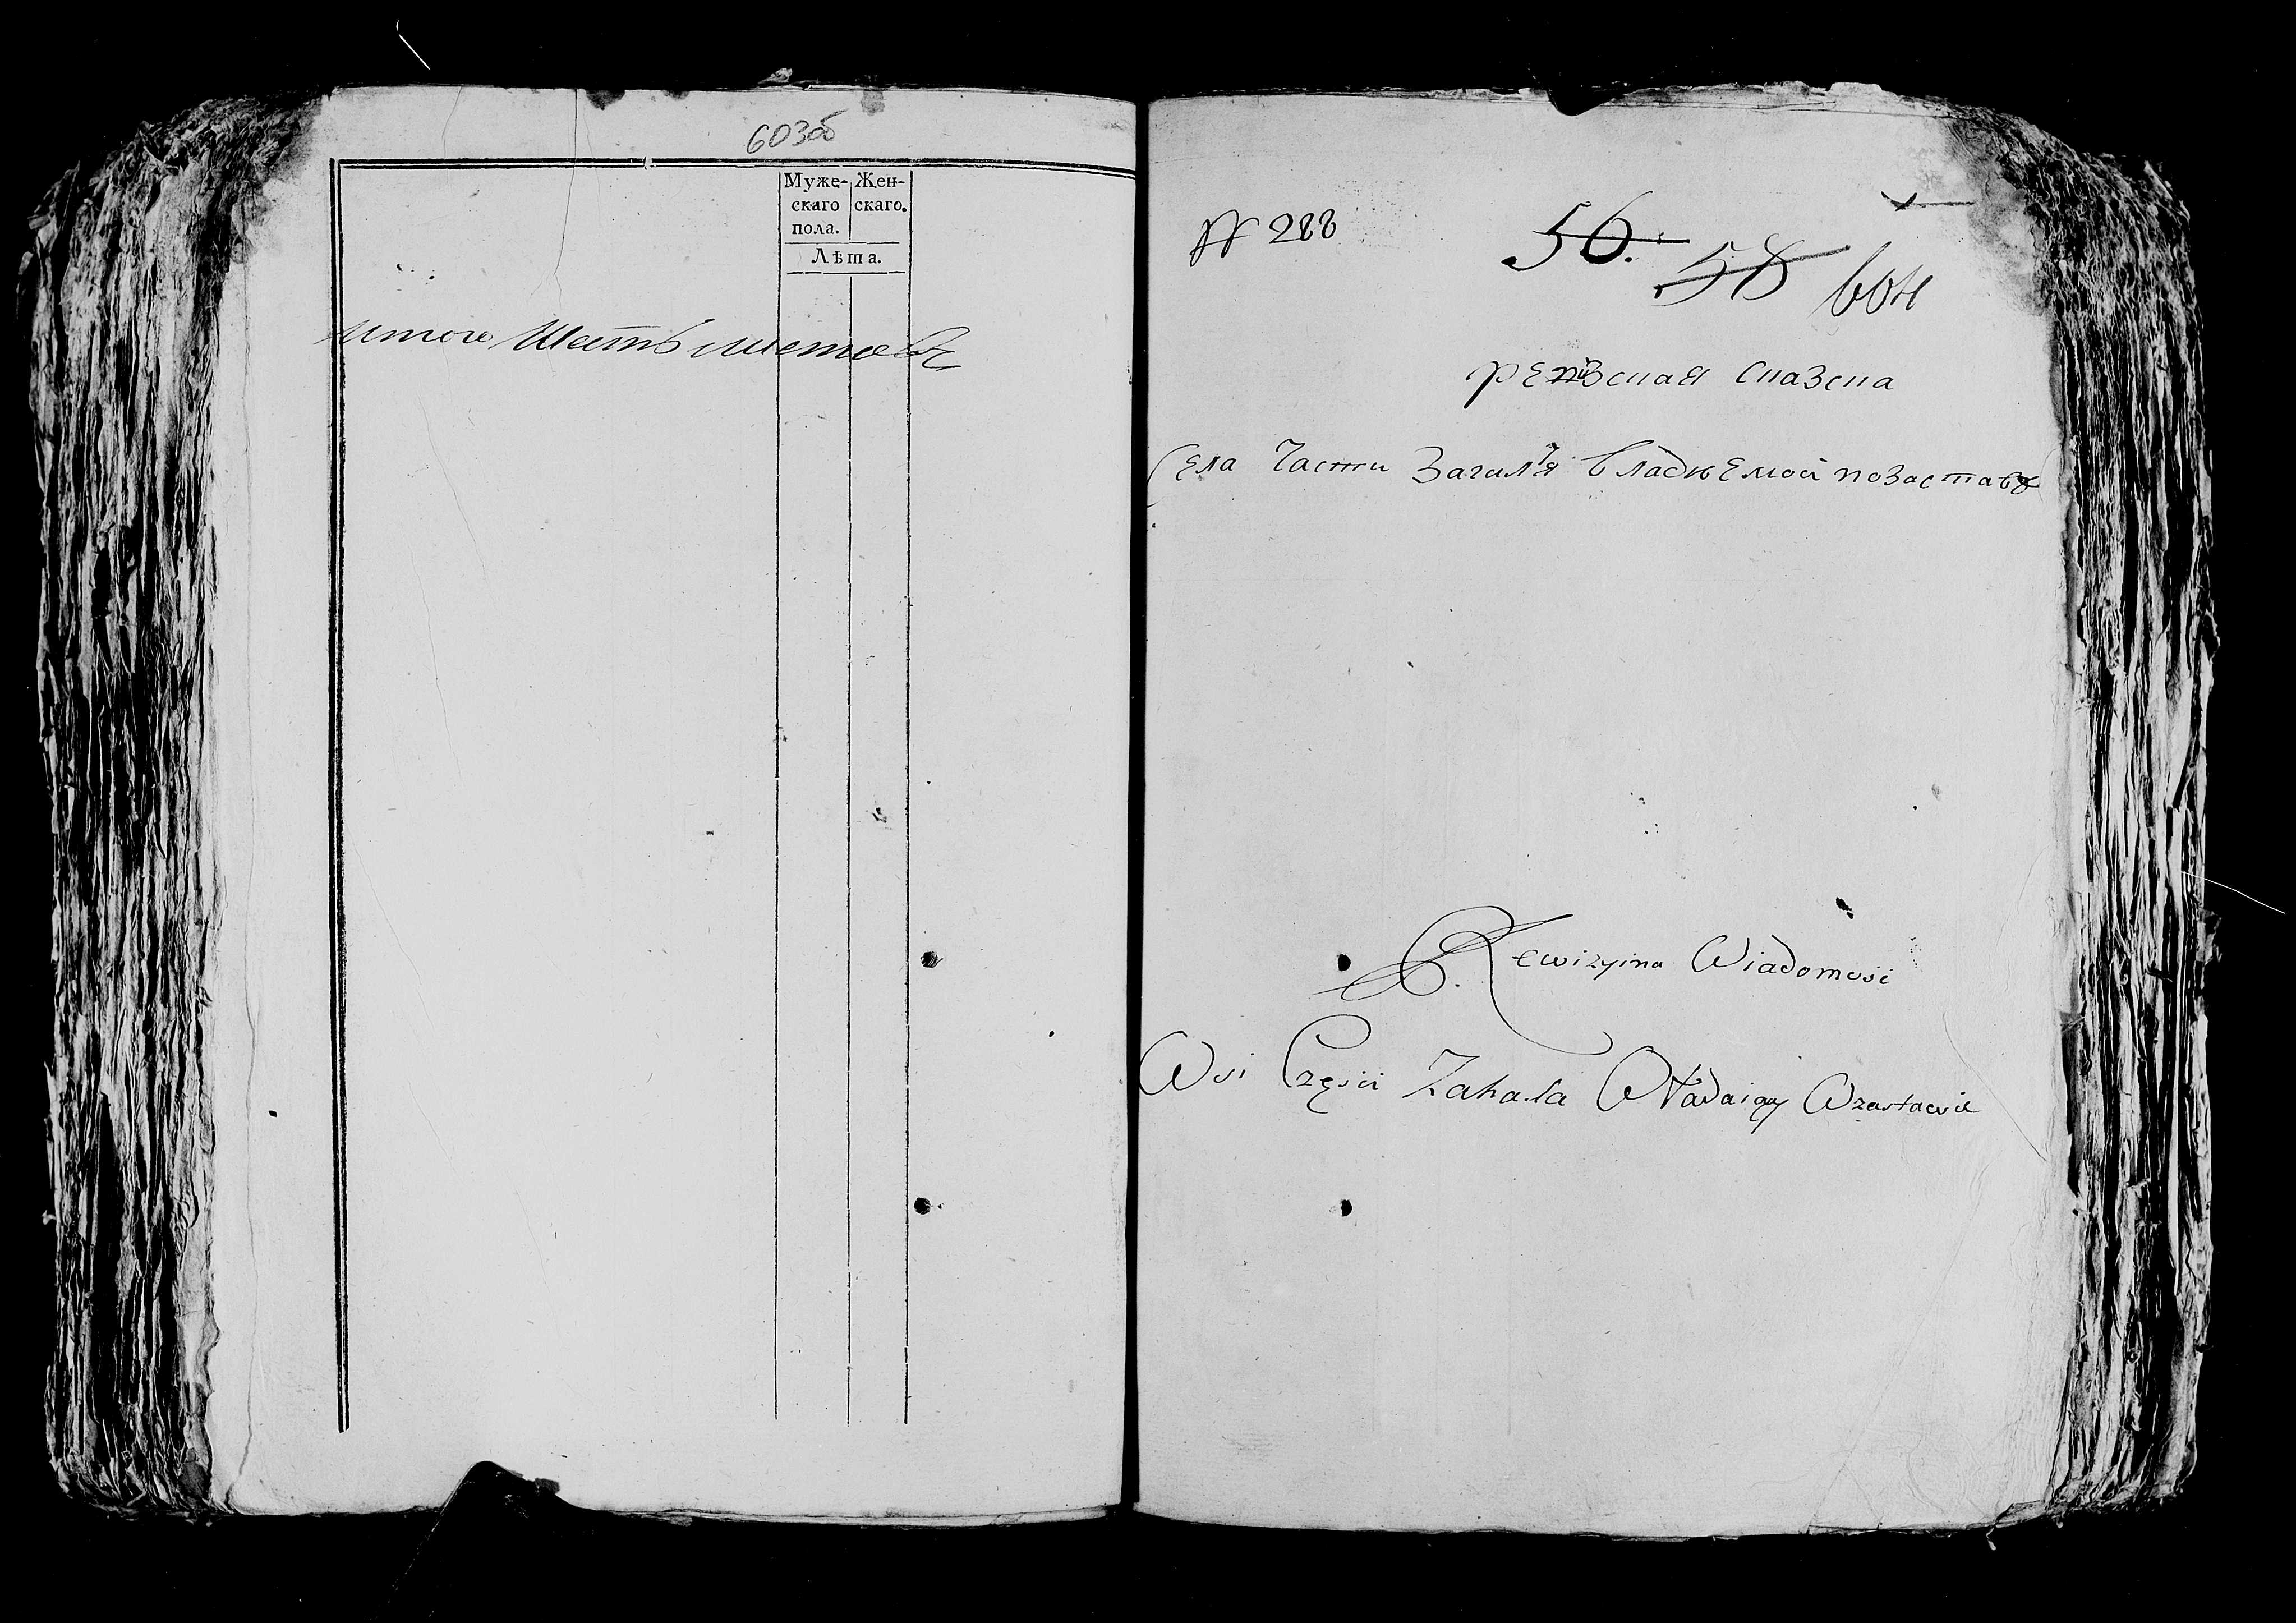 603об
Муже- Жен-
скаго скаго.
пола.
Лѣта.
итого Шесть листовъ
№ 288
56.
58 604
Ревизская Сказка
Села Части Загаля владѣемой по Заставѣ
Rewizyina Wiadomosć
Wsi Częsici Zahala Władaiący Wzastawie